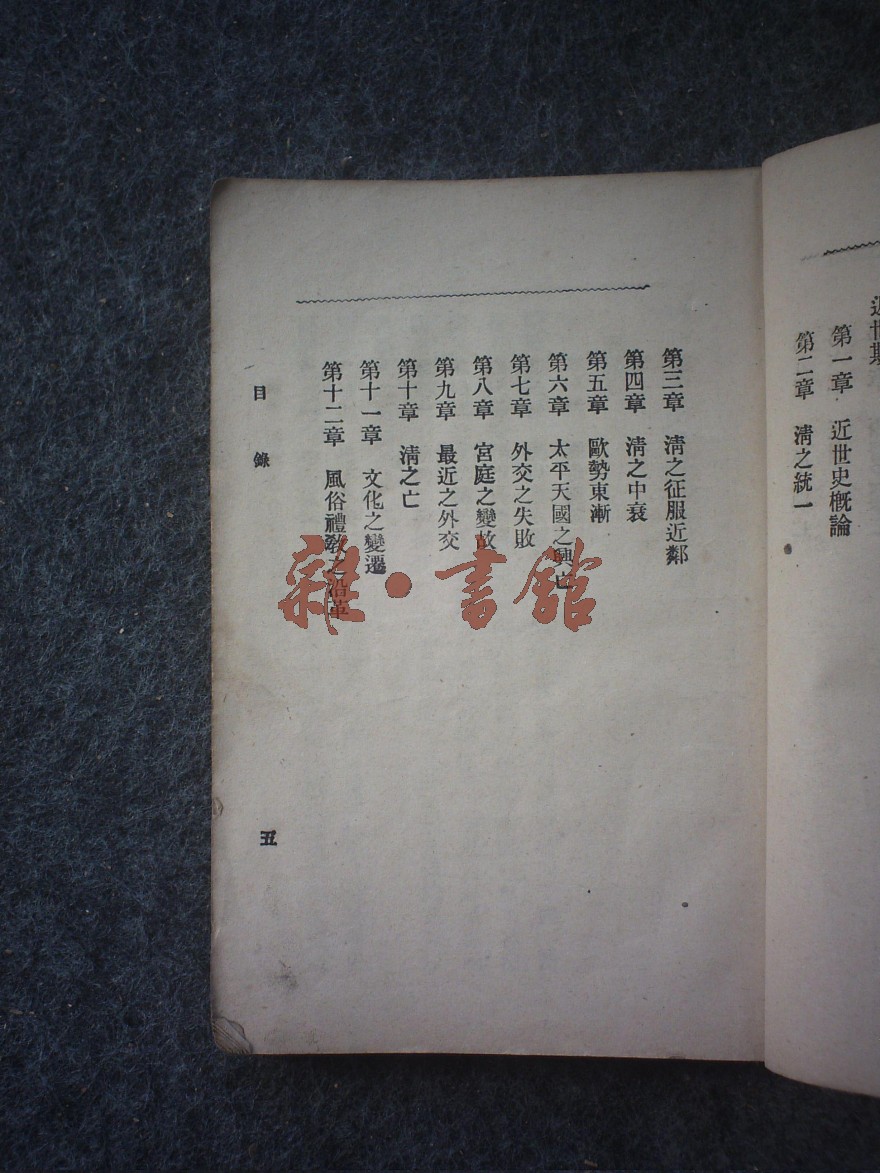 近世期
第一章 近世史概論
第二章 淸之統一
第三章 淸之征服近鄰
第四章 淸之中衰
第五章 歐勢東漸
第六章 太平天國之興亡
第七章 外交之失敗
第八章 宮庭之變故
第九章 最近之外交
第十章 淸之亡
第十一章 文化之變遷
第十二章 風俗禮敎之沿革
目錄
五
雜·書館